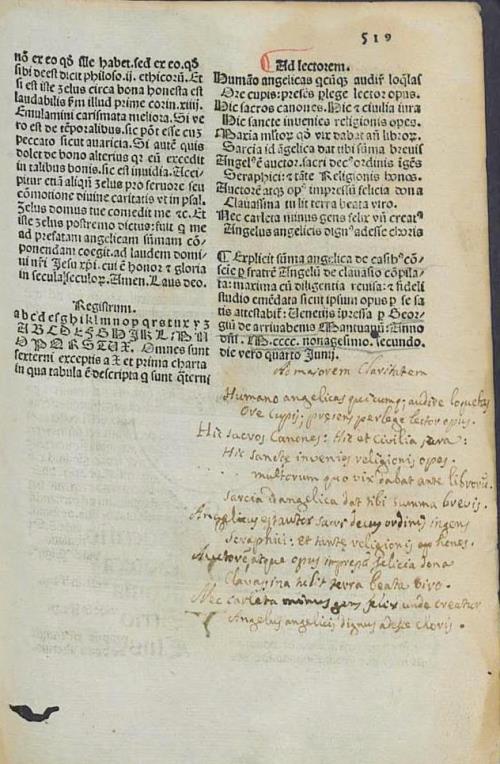 519
nō ex eo qđ ille habet. sed ex eo. qđ
sibi deest dicit philoso. ij. ethicoꝝ. Et
si est iste zelus circa bona honesta est
laudabilis fm illud prime corin. xiiij.
Emulamini carismata meliora. Si ve
ro est de tēporalibus. sic pōt esse cuz
peccato sicut auaricia. Si autē quis
dolet de bono alterius qꝛ eū excedit
in talibus bonis. sic est inuidia. Acci-
pitur etiā aliqñ zelus pro feruore seu
cōmotione diuine caritatis vt in psal.
Zelus domus tue comedit me ⁊c. Et
iste zelus postremo dictus: fuit qͥ me
ad prefatam angelicam sūmam cō-
ponendam coegit. ad laudem domi-
ni nr̄i Jesu xp̄i. cui ē honor ⁊ gloria
in secula seculoꝝ. Amen. Laus deo.
Registrum.
a b c d e f g h i k l m n o p q r s t u x y z
A B C D E F G H I K L M N
O P Q R S T U X. Omnes sunt
sexterni exceptis a X et prima charta
in qua tabula ē descripta q̄ sunt q̄terni
Ad lectorem.
Humāo angelicas qͥcūqꝫ audir̄ loq̄las
Ore cupis: presēs plege lector opus.
Hic sacros canones. Hic ⁊ ciuilia iura
Hic sancte inuenies religionis opes.
Maxia mltoꝝ qđ vix dabat an̄ libroꝝ.
Sarcia id āgelica dat tibi sūma breuis
Angelꝰ ē auctor. sacri decꝰ ordinis īgēs
Seraphici: ⁊ tāte Religionis honos.
Auctorē atqꝫ opꝰ impressū felicia dona
Clauassina tulit terra beata viro.
Nec carleta minus gens felix vn̄ creatꝰ
Angelus angelicis dignꝰ adesse choris
¶ Explicit sūma angelica de casibꝰ cō-
scie p̱ fratrē Angelū de clauasio cōpila-
ta: maxima cū diligentia reuisa: ⁊ fideli
studio emēdata sicut ipsum opus p̱ se sa
tis attestabit̄. Uenetijs īpressa p̱ Geor-
giū de arriuabenis Mantuanū: Anno
dn̄i. M. cccc. nonagesimo. secundo.
die vero quarto Junij.
Ad majorem Claritatem
Humano angelicas quicumq; audire loquelas
Ore Cupis; presens perlege lector opus.
Hic sacros Canones: Hic et Civilia jura:
Hic sancte invenies religionis opes.
multorum quo vix dabat ante librorū.
sarcia id angelica dat tibi summa brevis.
Angelicus est autor sacri decus ordinis ingens
Seraphici: Et tante religionis honos.
Auctorē; atque opus impressū felicia dona
Clavassina tulit terra beata viro.
Nec carleta minus gens felix unde creatur
Angelus angelicis dignus adesse choris.